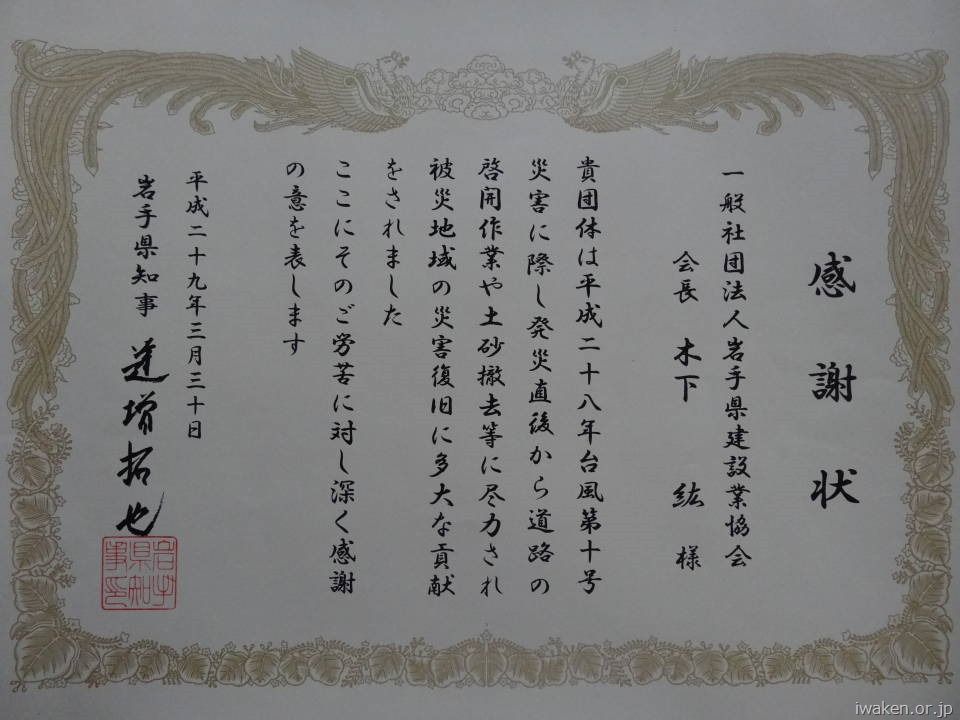 感謝状
一般社団法人岩手県建設業協会
会長 木下 紘 様
貴団体は平成二十八年台風第十号
災害に際し発災直後から道路の
啓開作業や土砂撤去等に尽力され
被災地域の災害復旧に多大な貢献
をされました
ここにそのご労苦に対し深く感謝
の意を表します
平成二十九年三月三十日
岩手県知事 達増拓也
岩手県知事印
iwaken.or.jp